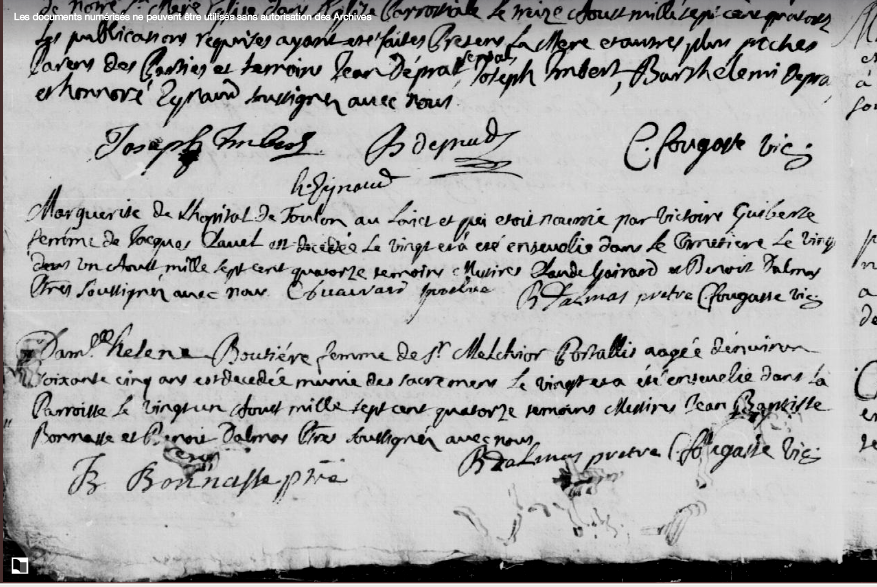 Les documents numérisés ne peuvent être utilisés sans autorisation des Archives
de notre Ste Mere Eglise dans Eglise Parroissiale le treize Aoust mille sept cent quatorze
les publications requises ayant esté faites Presens la Mere et autres plus proches
Parens des Parties et temoins Jean Joseph Imbert, Barthelemi
et honnoré Eynaud soussignez avec nous.
Joseph Imbert
C. fougasse vic:
h. Eynaud
Marguerite de Lhopital de Toulon au laict et qui etoit nourrie par Victoire Guiberte
femme de Jacques est decedée Le vingt et a eté ensevelie dans le Cimetiere Le vingt
un Aoust mille sept cent quatorze temoins Messires Claude et Benoit Dalmas
Ptres soussignez avec nous
B Dalmas pretre C. fougasse Vic:
Damlle helene Boutiére femme de Sr Melchior Portallis aagée d'environ
soixante cinq ans est decedée munie des sacremens le vingt et a eté ensevelie dans La
Parroisse Le vingt un Aoust mille sept cent quatorze temoins Messires Jean Baptiste
Bonnasse et Benoit Dalmas Ptres soussignez avec nous
B Dalmas pretre C. fougasse Vic:
JB Bonnasse ptre